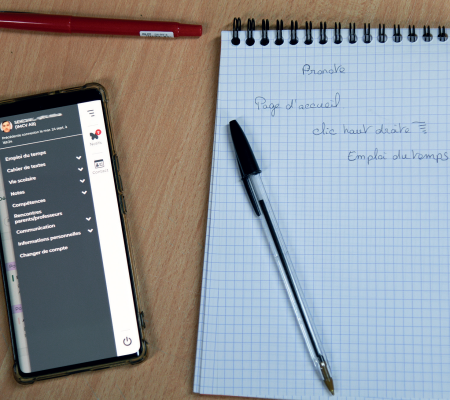 (IMCV AB)
Emploi du temps
Cahier de textes
Vie scolaire
Notes
Compétences
Rencontres
parents/professeurs
Communication
Informations personnelles
Changer de compte
Pronote
Page d'accueil
clic haut droite
Emploi du temps